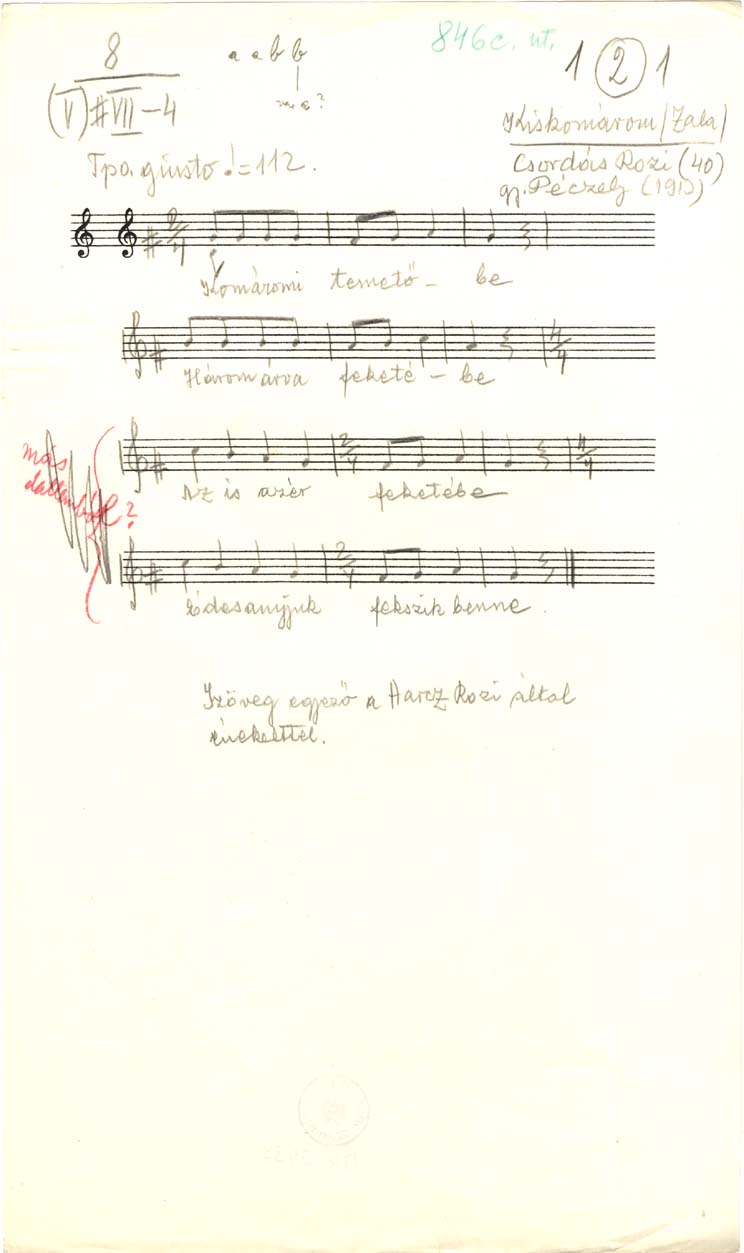 8
(V) #VII-4
a a b b
846c. ut.
1 ② 1
Kiskomárom (Zala)
Csordás Rozi (40)
gy. Péczely (1910)
Tpo. giusto ♩=112.
2/4
Komáromi temető - be
Három árva feketé - be
4/4
más
dallamból?
Az is azér feketébe
2/4 4/4
Édesanyjuk fekszik benne.
2/4
Szöveg egyező a Harcz Rozi által
énekelttel.